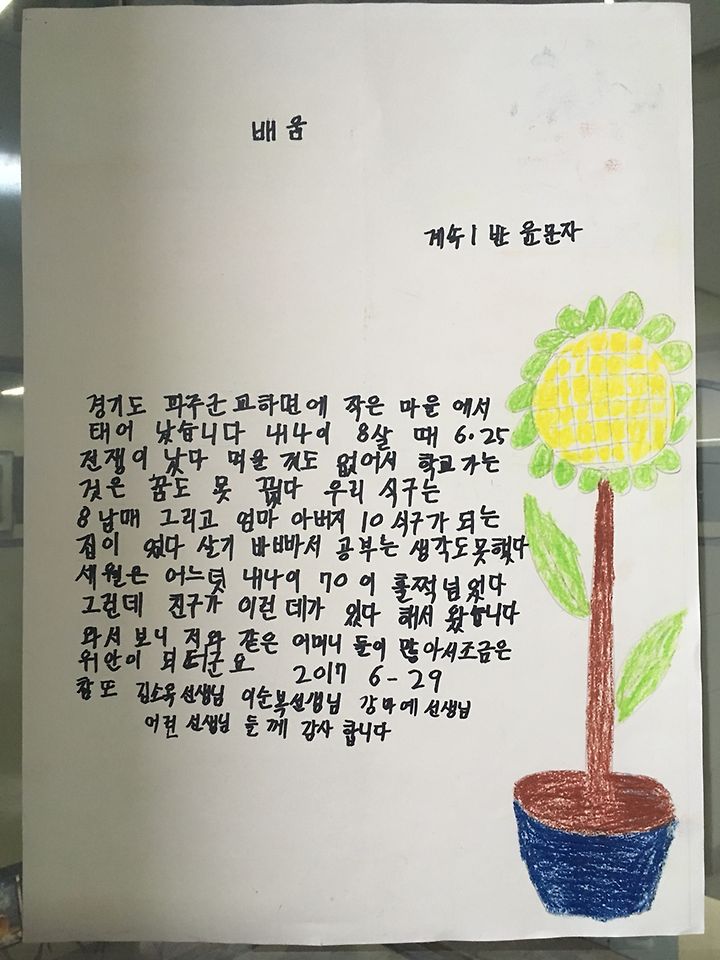 배움
계속 1 반 윤문자
경기도 파주군 교하면에 작은 마을 에서
태어 났습니다 내나이 8살 때 6·25
전쟁이 났다 먹을 것도 없어서 학교가는
것은 꿈도 못 꿨다 우리 식구는
8남매 그리고 엄마 아버지 10 식구가 되는
집이 였다 살기 바빠서 공부는 생각도못했다
세월은 어느덧 내나이 70 이 훌쩍넘었다
그런데 친구가 이런 데가 있다 해서 왔습니다
와서 보니 저와 같은 어머니 들이 많아서조금은
위안이 되더군요 2017 6-29
참또 김소옥선생님 이순복선생님 선생님
이런 선생님 들께 감사 합니다